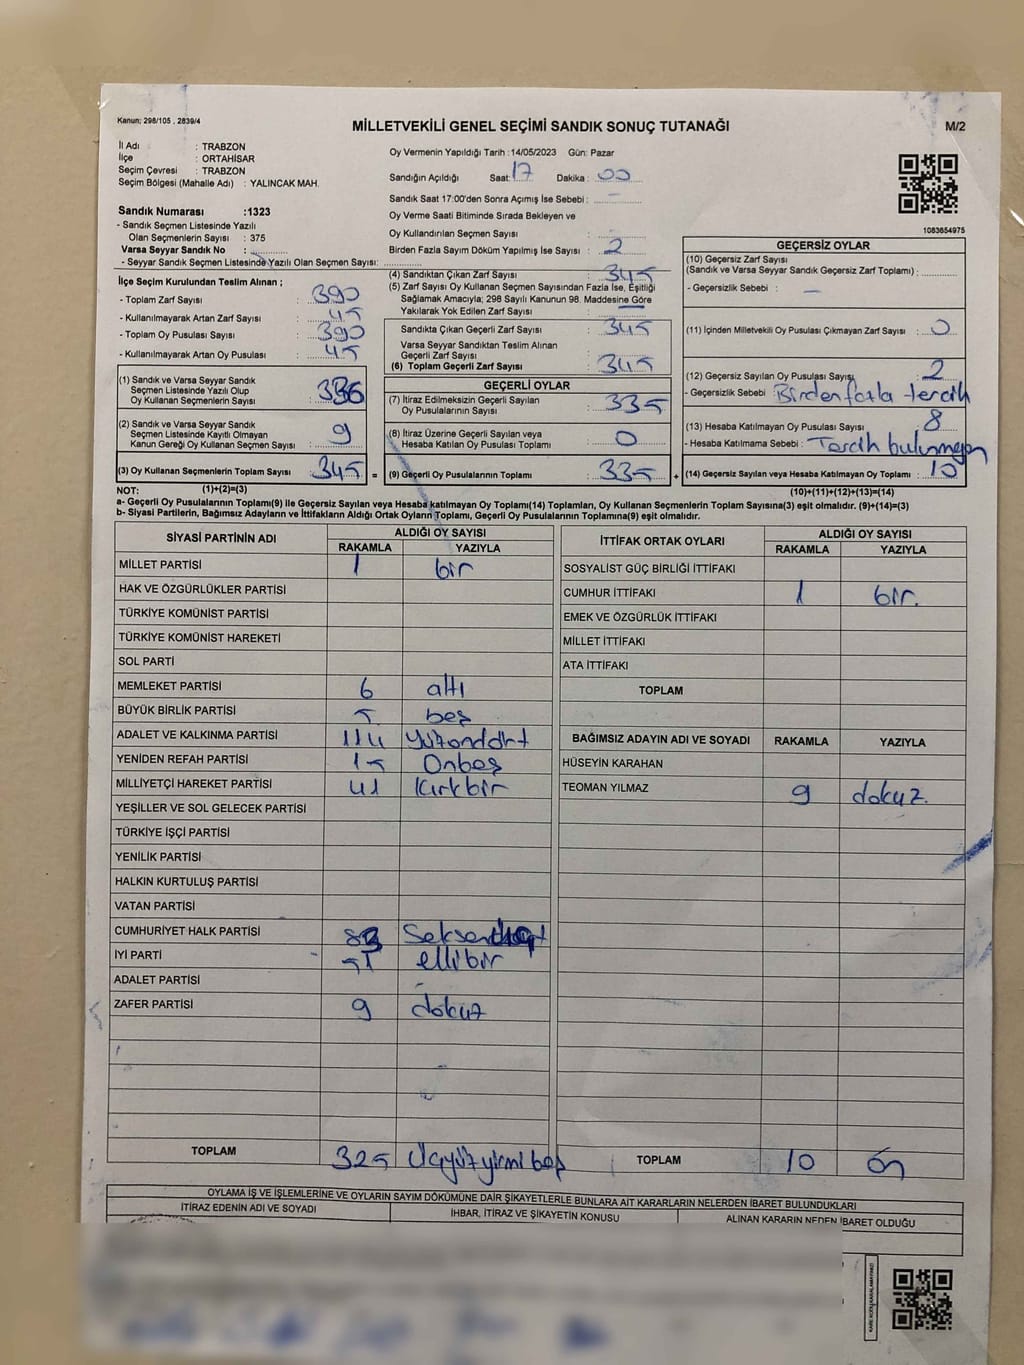 Kanun; 298/105 , 2839/4
MİLLETVEKİLİ GENEL SEÇİMİ SANDIK SONUÇ TUTANAĞI
M/2
İl Adı : TRABZON
İlçe : ORTAHİSAR
Seçim Çevresi : TRABZON
Seçim Bölgesi (Mahalle Adı) : YALINCAK MAH.
Sandık Numarası :1323
- Sandık Seçmen Listesinde Yazılı
Olan Seçmenlerin Sayısı : 375
Varsa Seyyar Sandık No :
- Seyyar Sandık Seçmen Listesinde Yazılı Olan Seçmen Sayısı:
Oy Vermenin Yapıldığı Tarih :14/05/2023 Gün: Pazar
Sandığın Açıldığı Saat: 17 Dakika : 00
Sandık Saat 17:00'den Sonra Açımış İse Sebebi : -
Oy Verme Saati Bitiminde Sırada Bekleyen ve
Oy Kullandırılan Seçmen Sayısı : -
Birden Fazla Sayım Döküm Yapılmış İse Sayısı : 2
1083654975
İlçe Seçim Kurulundan Teslim Alınan ;
- Toplam Zarf Sayısı : 390
- Kullanılmayarak Artan Zarf Sayısı : 45
- Toplam Oy Pusulası Sayısı : 390
- Kullanılmayarak Artan Oy Pusulası : 45
(1) Sandık ve Varsa Seyyar Sandık
Seçmen Listesinde Yazılı Olup
Oy Kullanan Seçmenlerin Sayısı : 336
(2) Sandık ve Varsa Seyyar Sandık
Seçmen Listesinde Kayıtlı Olmayan
Kanun Gereği Oy Kullanan Seçmen Sayısı : 9
(3) Oy Kullanan Seçmenlerin Toplam Sayısı : 345 =
(1)+(2)=(3)
(4) Sandıktan Çıkan Zarf Sayısı : 345
(5) Zarf Sayısı Oy Kullanan Seçmen Sayısından Fazla İse, Eşitliği
Sağlamak Amacıyla; 298 Sayılı Kanunun 98. Maddesine Göre
Yakılarak Yok Edilen Zarf Sayısı :
Sandıkta Çıkan Geçerli Zarf Sayısı : 345
Varsa Seyyar Sandıktan Teslim Alınan
Geçerli Zarf Sayısı :
(6) Toplam Geçerli Zarf Sayısı : 345
GEÇERLİ OYLAR
(7) İtiraz Edilmeksizin Geçerli Sayılan
Oy Pusulalarının Sayısı : 335
(8) İtiraz Üzerine Geçerli Sayılan veya
Hesaba Katılan Oy Pusulası Toplamı : 0
(9) Geçerli Oy Pusulalarının Toplamı : 335 +
GEÇERSİZ OYLAR
(10) Geçersiz Zarf Sayısı
(Sandık ve Varsa Seyyar Sandık Geçersiz Zarf Toplamı) :
- Geçersizlik Sebebi : -
(11) İçinden Milletvekili Oy Pusulası Çıkmayan Zarf Sayısı : 0
(12) Geçersiz Sayılan Oy Pusulası Sayısı : 2
- Geçersizlik Sebebi : Birden fazla tercih
(13) Hesaba Katılmayan Oy Pusulası Sayısı : 8
- Hesaba Katılmama Sebebi : Tercih bulunmayan
(14) Geçersiz Sayılan veya Hesaba Katılmayan Oy Toplamı : 10
(10)+(11)+(12)+(13)=(14)
NOT:
a- Geçerli Oy Pusulalarının Toplamı(9) ile Geçersiz Sayılan veya Hesaba katılmayan Oy Toplamı(14) Toplamları, Oy Kullanan Seçmenlerin Toplam Sayısına(3) eşit olmalıdır. (9)+(14)=(3)
b- Siyasi Partilerin, Bağımsız Adayların ve İttifakların Aldığı Ortak Oyların Toplamı, Geçerli Oy Pusulalarının Toplamına(9) eşit olmalıdır.
SİYASİ PARTİNİN ADI ALDIĞI OY SAYISI
RAKAMLA YAZIYLA
MİLLET PARTİSİ 1 bir
HAK VE ÖZGÜRLÜKLER PARTİSİ
TÜRKİYE KOMÜNİST PARTİSİ
TÜRKİYE KOMÜNİST HAREKETİ
SOL PARTİ
MEMLEKET PARTİSİ 6 altı
BÜYÜK BİRLİK PARTİSİ 5 beş
ADALET VE KALKINMA PARTİSİ 114 Yüzondört
YENİDEN REFAH PARTİSİ 15 Onbeş
MİLLİYETÇİ HAREKET PARTİSİ 41 Kırkbir
YEŞİLLER VE SOL GELECEK PARTİSİ
TÜRKİYE İŞÇİ PARTİSİ
YENİLİK PARTİSİ
HALKIN KURTULUŞ PARTİSİ
VATAN PARTİSİ
CUMHURİYET HALK PARTİSİ
İYİ PARTİ 51 ellibir
ADALET PARTİSİ
ZAFER PARTİSİ 9 dokuz
TOPLAM 325 Üçyüzyirmibeş
İTTİFAK ORTAK OYLARI ALDIĞI OY SAYISI
RAKAMLA YAZIYLA
SOSYALİST GÜÇ BİRLİĞİ İTTİFAKI
CUMHUR İTTİFAKI 1 bir.
EMEK VE ÖZGÜRLÜK İTTİFAKI
MİLLET İTTİFAKI
ATA İTTİFAKI
TOPLAM
BAĞIMSIZ ADAYIN ADI VE SOYADI RAKAMLA YAZIYLA
HÜSEYİN KARAHAN
TEOMAN YILMAZ 9 dokuz.
TOPLAM 10 On
OYLAMA İŞ VE İŞLEMLERİNE VE OYLARIN SAYIM DÖKÜMÜNE DAİR ŞİKAYETLERLE BUNLARA AİT KARARLARIN NELERDEN İBARET BULUNDUKLARI
İTİRAZ EDENİN ADI VE SOYADI İHBAR, İTİRAZ VE ŞİKAYETİN KONUSU ALINAN KARARIN NEDEN İBARET OLDUĞU
KARE KODU KARALAMAYINIZ!